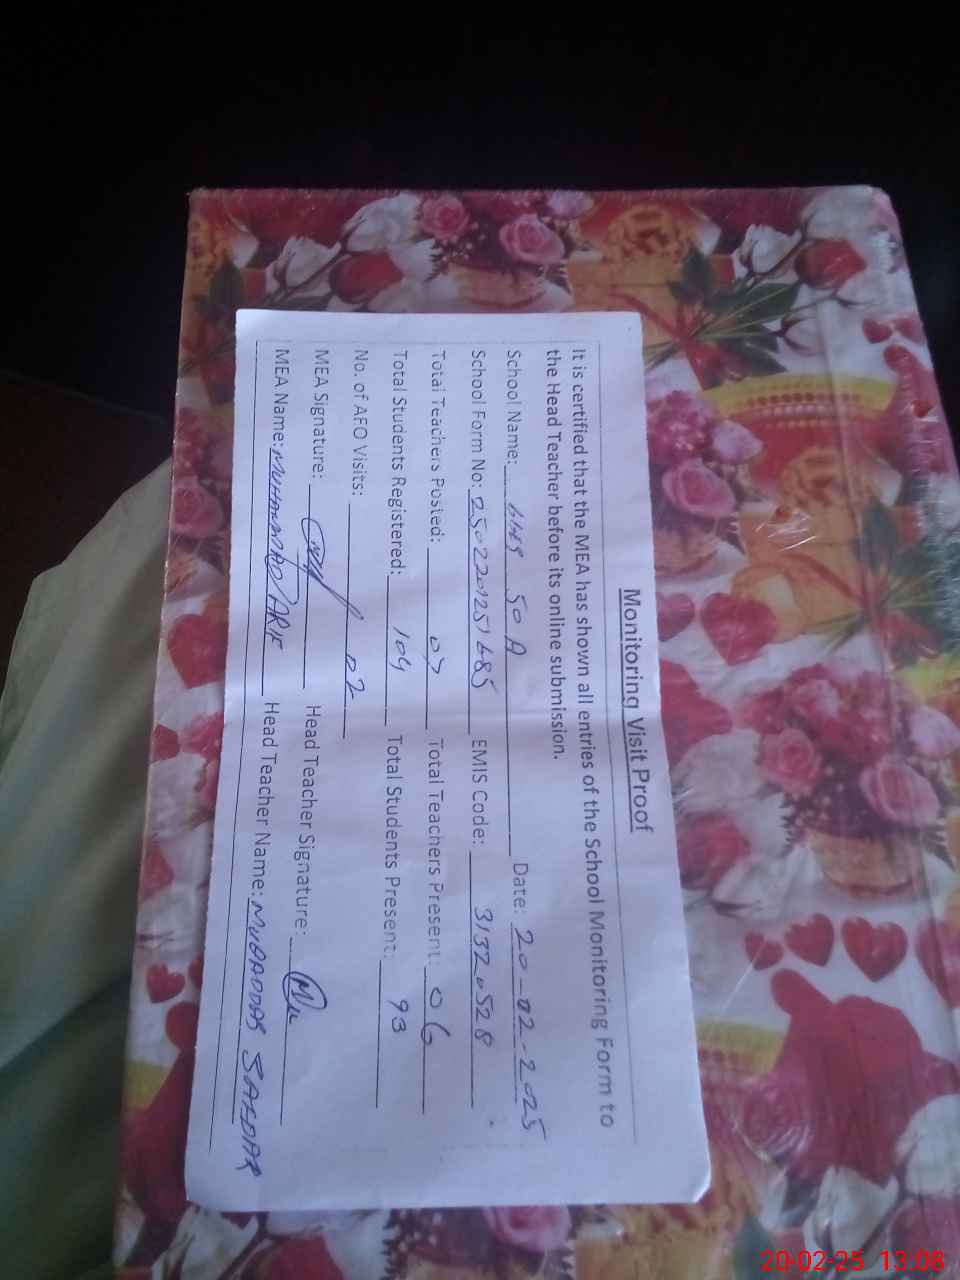 Monitoring Visit Proof
It is certified that the MEA has shown all entries of the School Monitoring Form to
the Head Teacher before its online submission.
School Name: 50 A Date: 20-02-2025
School Form No: EMIS Code: 31320528
Total Teachers Posted: 07 Total Teachers Present: 06
Total Students Registered: 104 Total Students Present: 93
No. of AFO Visits: 02
MEA Signature: Head Teacher Signature:
MEA Name: MUHAMMAD ARIF Head Teacher Name:
20-02-25 13:08